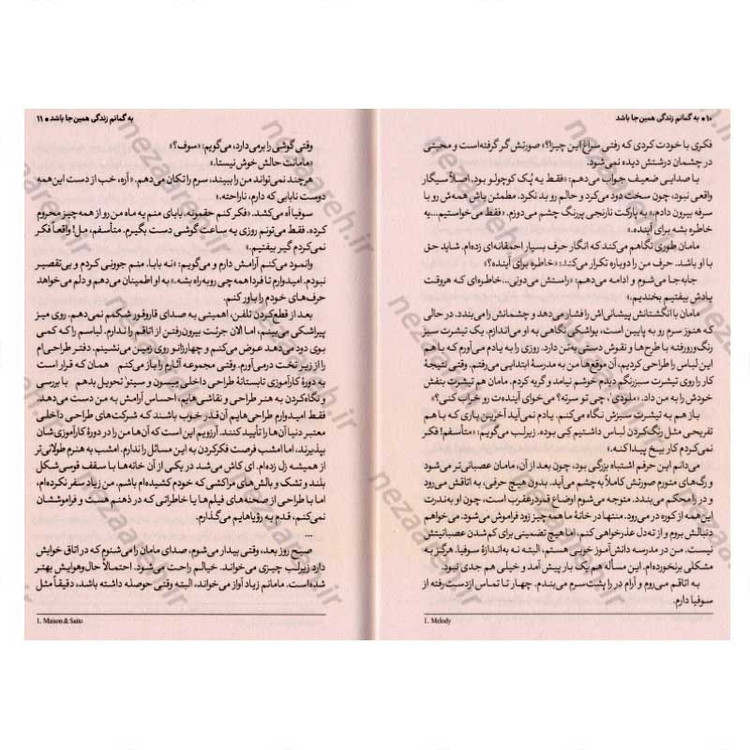 ۱۰ • به گمانم زندگی همین جا باشد
فکری با خودت کردی که رفتی سراغ این چیزا؟» صورتش گر گرفته است و محبتی
در چشمان درشتش دیده نمی‌شود.
با صدایی ضعیف جواب می‌دهم: «فقط یه پک کوچولو بود. اصلاً سیگار
واقعی نبود، چون سخت دود می‌کرد و حالم رو بد نکرد. مطمئن باش همه‌ش رو با
سرفه بیرون دادم.» به پارکت نارنجی پررنگ چشم می‌دوزم. «فقط می‌خواستیم...یه
خاطره بشه برای آینده.»
مامان طوری نگاهم می‌کند که انگار حرف بسیار احمقانه‌ای زده‌ام. شاید حق
با او باشد. حرف من را دوباره تکرار می‌کند: «خاطره برای آینده؟»
جابه‌جا می‌شوم و ادامه می‌دهم: «راستش می‌دونی... خاطره‌ای که هروقت
یادش بیفتم بخندیم.»
مامان با انگشتانش پیشانی‌اش را فشار می‌دهد و چشمانش را می‌بندد. در حالی
که هنوز سرم رو به پایین است، یواشکی نگاهی به او می‌اندازم. یک تیشرت سبز
رنگ‌ورورفته با طرح‌ها و نقوش دستی به‌تن دارد. روزی را به یادم می‌آورم که با هم
این لباس را طراحی کردیم. آن موقع‌ها من به مدرسهٔ ابتدایی می‌رفتم. وقتی نتیجهٔ
کار را روی تیشرت سبزرنگم دیدم خوشم نیامد و گریه کردم. مامان هم تیشرت بنفش
خودش را به من داد. «ملودی¹، چی تو سرته؟ می‌خوای آینده‌ت رو خراب کنی؟»
باز هم به تیشرت سبزش نگاه می‌کنم. یادم نمی‌آید آخرین باری که با هم
تفریحی مثل رنگ‌کردن لباس داشتیم کِی بوده. زیرلب می‌گویم: «متأسفم! فکر
نمی‌کردم کار بیخ پیدا کنه.»
می‌دانم این حرفم اشتباه بزرگی بود، چون بعد از آن، مامان عصبانی‌تر می‌شود
و رگ‌های متورم صورتش کاملاً به‌چشم می‌آید. بدون هیچ حرفی، به اتاقش می‌رود
و در را محکم می‌بندد. متوجه می‌شوم اوضاع قمردرعقرب است، چون او به‌ندرت
این‌همه از کوره در می‌رود. منتها در خانهٔ ما همه‌چیز زود فراموش می‌شود. می‌خواهم
دنبالش بروم و از ته‌دل عذرخواهی کنم، اما هیچ تضمینی برای کم‌شدن عصبانیتش
نیست. من در مدرسه دانش‌آموز خوبی هستم، البته نه به‌اندازهٔ سوفیا. هرگز به
مشکلی برنخورده‌ام. این مسأله هم یک بار پیش آمد و خیلی هم جدی نبود.
به اتاقم می‌روم و آرام در را پشت‌سرم می‌بندم. چهار تا تماس ازدست‌رفته از
سوفیا دارم.
1. Melody
به گمانم زندگی همین جا باشد • ۱۱
وقتی گوشی را برمی‌دارد، می‌گویم: «سوف؟»
«مامانت حالش خوش نیستا.»
هرچند نمی‌تواند من را ببیند، سرم را تکان می‌دهم. «آره، خب از دست این‌همه
دوست نابابی که دارم، ناراحته.»
سوفیا آه می‌کشد. «فکر کنم حقمونه. بابای منم یه ماه من رو از همه‌چیز محروم
کرده. فقط می‌تونم روزی یه ساعت گوشی دست بگیرم. متأسفم، مل! واقعاً فکر
نمی‌کردم گیر بیفتیم.»
وانمود می‌کنم آرامش دارم و می‌گویم: «نه بابا. منم جوونی کردم و بی‌تقصیر
نبودم. امیدوارم تا فردا همه‌چی روبه‌راه بشه.» به او اطمینان می‌دهم و دلم می‌خواهد
حرف‌های خودم را باور کنم.
بعد از قطع‌کردن تلفن، اهمیتی به صدای قاروقور شکمم نمی‌دهم. روی میز
پیراشکی می‌بینم، اما الان جرئت بیرون‌رفتن از اتاقم را ندارم. لباسم را که کمی
بوی دود می‌دهد عوض می‌کنم و چهارزانو روی زمین می‌نشینم. دفتر طراحی‌ام
را از زیر تخت درمی‌آورم. وقتی مجموعه آثارم را باز می‌کنم همان که قرار است
به دورهٔ کارآموزی تابستانهٔ طراحی داخلی میسون و سیتو¹ تحویل بدهم با بررسی
و نگاه‌کردن به هنر طراحی و نقاشی‌هایم، احساس آرامش به من دست می‌دهد.
فقط امیدوارم طراحی‌هایم آن‌قدر خوب باشند که شرکت‌های طراحی داخلی
معتبر دنیا آن‌ها را تأیید کنند. آرزویم این است که آن‌ها من را در دورهٔ کارآموزی‌شان
بپذیرند، اما امشب فرصت فکرکردن به این مسائل را ندارم. امشب به هنرم طولانی‌تر
از همیشه زل زده‌ام. ای کاش می‌شد در یکی از آن خانه‌ها با سقف قوسی‌شکل
بلند و تشک و بالش‌های مراکشی که خودم کشیده‌ام باشم. من زیاد سفر نکرده‌ام،
اما با طراحی از صحنه‌های فیلم‌ها یا خاطراتی که در ذهنم هست و فراموششان
نمی‌کنم، قدم به رؤیاهایم می‌گذارم.
...
صبح روز بعد، وقتی بیدار می‌شوم، صدای مامان را می‌شنوم که در اتاق خوابش
دارد زیرلب چیزی می‌خواند. خیالم راحت می‌شود. احتمالاً حال‌وهوایش بهتر
شده‌است. مامانم زیاد آواز می‌خواند، البته وقتی حوصله داشته باشد، دقیقاً مثل
1. Mason & Saito
nezaareh.ir